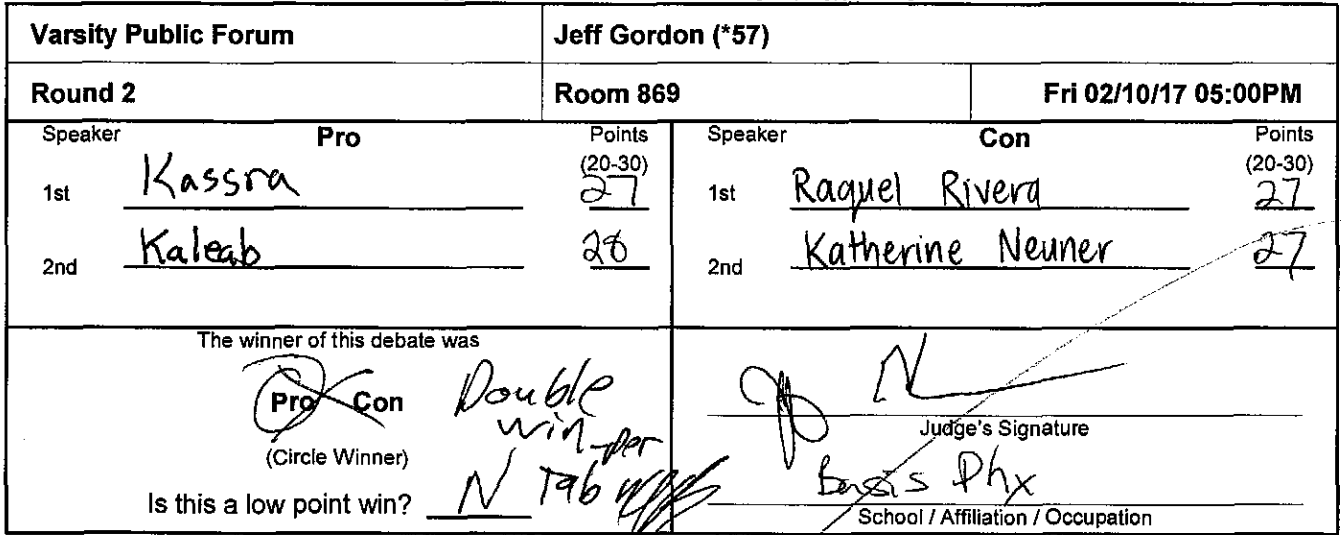 Varsity Public Forum Jeff Gordon (*57)
Round 2 Room 869 Fri 02/10/17 05:00PM
Speaker Pro Points
(20-30)
1st Kassra 27
2nd Kaleab 28
Speaker Con Points
(20-30)
1st Raquel Rivera 27
2nd Katherine Neuner 27
The winner of this debate was
Pro Con
(Circle Winner)
Double
win-per
Tab
Is this a low point win? N
Judge's Signature
Basis Phx
School / Affiliation / Occupation